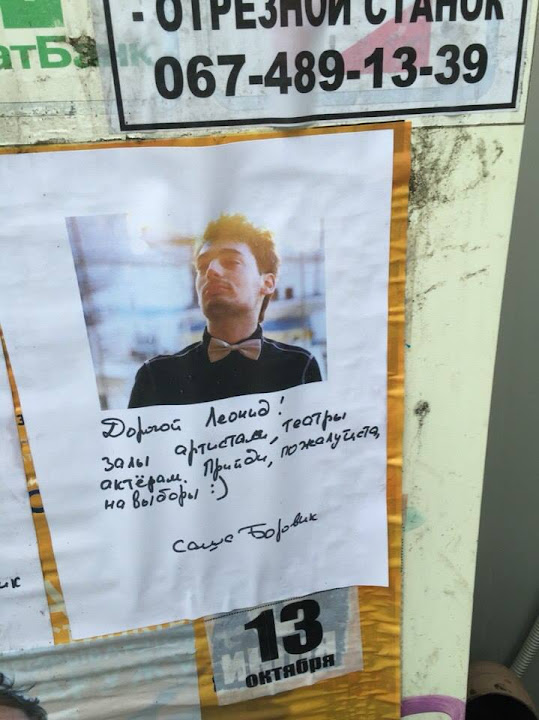 - ОТРЕЗНОЙ СТАНОК
067-489-13-39
атБанк
Дорогой Леонид!
Залы артистам, театры
актёрам. Прийди, пожалуйста,
на выборы :)
Саша Боровик
ик
13
октября